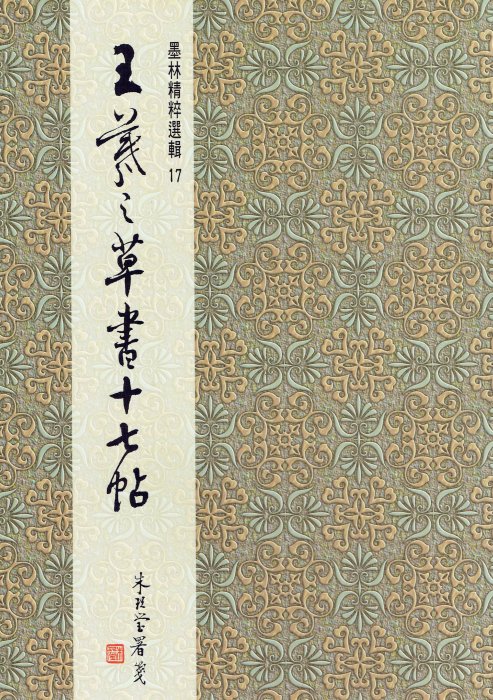 墨林精粹選輯 17
王羲之草書十七帖
朱玖瑩署箋